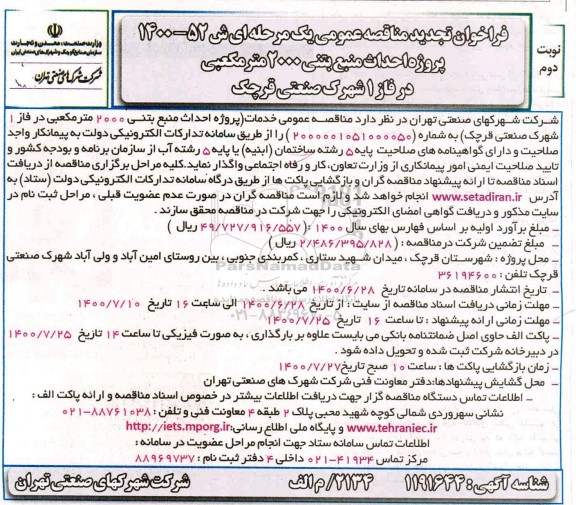 فراخوان تجدید مناقصه عمومی یک مرحله ای ش ۵۲-۱۴۰۰
پروژه احداث منبع بتنی ۲۰۰۰ مترمکعبی
در فاز ۱ شهرک صنعتی قرچک
نوبت
دوم
وزارت صنعت، معدن و تجارت
شرکت شهرکهای صنعتی تهران
شرکت شهرکهای صنعتی تهران در نظر دارد مناقصه عمومی خدمات (پروژه احداث منبع بتنی ۲۰۰۰ مترمکعبی در فاز ۱
شهرک صنعتی قرچک) به شماره (۲۰۰۰۰۰۱۰۵۱۰۰۰۰۵۰) را از طریق سامانه تدارکات الکترونیکی دولت به پیمانکار واجد
صلاحیت و دارای گواهینامه های صلاحیت پایه ۵ رشته ساختمان (ابنیه) یا پایه ۵ رشته آب از سازمان برنامه و بودجه کشور و
تایید صلاحیت ایمنی امور پیمانکاری از وزارت تعاون، کار و رفاه اجتماعی واگذار نماید. کلیه مراحل برگزاری مناقصه از دریافت
اسناد مناقصه تا ارائه پیشنهاد مناقصه گران و بازگشایی پاکت ها از طریق درگاه سامانه تدارکات الکترونیکی دولت (ستاد) به
آدرس www.setadiran.ir انجام خواهد شد و لازم است مناقصه گران در صورت عدم عضویت قبلی، مراحل ثبت نام در
سایت مذکور و دریافت گواهی امضای الکترونیکی را جهت شرکت در مناقصه محقق سازند.
– مبلغ برآورد اولیه بر اساس فهارس بهای سال ۱۴۰۰ : (۴۹/۷۲۷/۹۱۶/۵۵۷ ریال)
– مبلغ تضمین شرکت در مناقصه: (۲/۴۸۶/۳۹۵/۸۲۸ ریال)
– محل پروژه: شهرستان قرچک، میدان شهید ستاری، کمربندی جنوبی، بین روستای امین آباد و ولی آباد شهرک صنعتی
قرچک تلفن: ۳۶۱۹۴۶۰۰
– تاریخ انتشار مناقصه در سامانه تاریخ ۱۴۰۰/۶/۲۸ می باشد.
– مهلت زمانی دریافت اسناد مناقصه از سایت: از تاریخ ۱۴۰۰/۶/۲۸ الی ساعت ۱۶ تاریخ ۱۴۰۰/۷/۱۰
– مهلت زمانی ارائه پیشنهاد: تا ساعت ۱۶ تاریخ ۱۴۰۰/۷/۲۵
– پاکت الف حاوی اصل ضمانتنامه بانکی می بایست علاوه بر بارگذاری، به صورت فیزیکی تا ساعت ۱۴ تاریخ ۱۴۰۰/۷/۲۵
در دبیرخانه شرکت ثبت شده و تحویل داده شود.
– زمان بازگشایی پاکت ها: ساعت ۱۰ صبح تاریخ ۱۴۰۰/۷/۲۷
– محل گشایش پیشنهادها: دفتر معاونت فنی شرکت شهرک های صنعتی تهران
– اطلاعات تماس دستگاه مناقصه گزار جهت دریافت اطلاعات بیشتر در خصوص اسناد مناقصه و ارائه پاکت الف:
نشانی سهروردی شمالی کوچه شهید محبی پلاک ۲ طبقه ۴ معاونت فنی و تلفن: ۸۸۷۶۱۰۳۸-۰۲۱
www.tehraniec.ir و پایگاه ملی اطلاع رسانی: http://iets.mporg.ir
اطلاعات تماس سامانه ستاد جهت انجام مراحل عضویت در سامانه:
مرکز تماس ۴۱۹۳۴-۰۲۱ داخلی ۴ دفتر ثبت نام: ۸۸۹۶۹۷۳۷
شناسه آگهی: ۱۱۹۱۶۴۴
۲۱۳۴/ م الف
شرکت شهرکهای صنعتی تهران